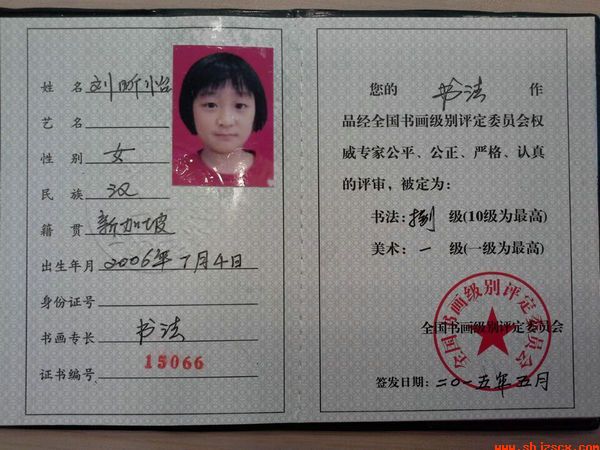 姓 名 刘昕怡
艺 名
性 别 女
民 族 汉
籍 贯 新加坡
出生年月 2006年7月4日
身份证号
书画专长 书法
证书编号 15066
您的 书法 作
品经全国书画级别评定委员会权
威专家公平、公正、严格、认真
的评审，被定为：
书法： 级(10级为最高)
美术：一 级(一级为最高)
全国书画级别评定委员会
全国书画级别评定委员会
签发日期：二〇一五年五月
www.shjzscx.com